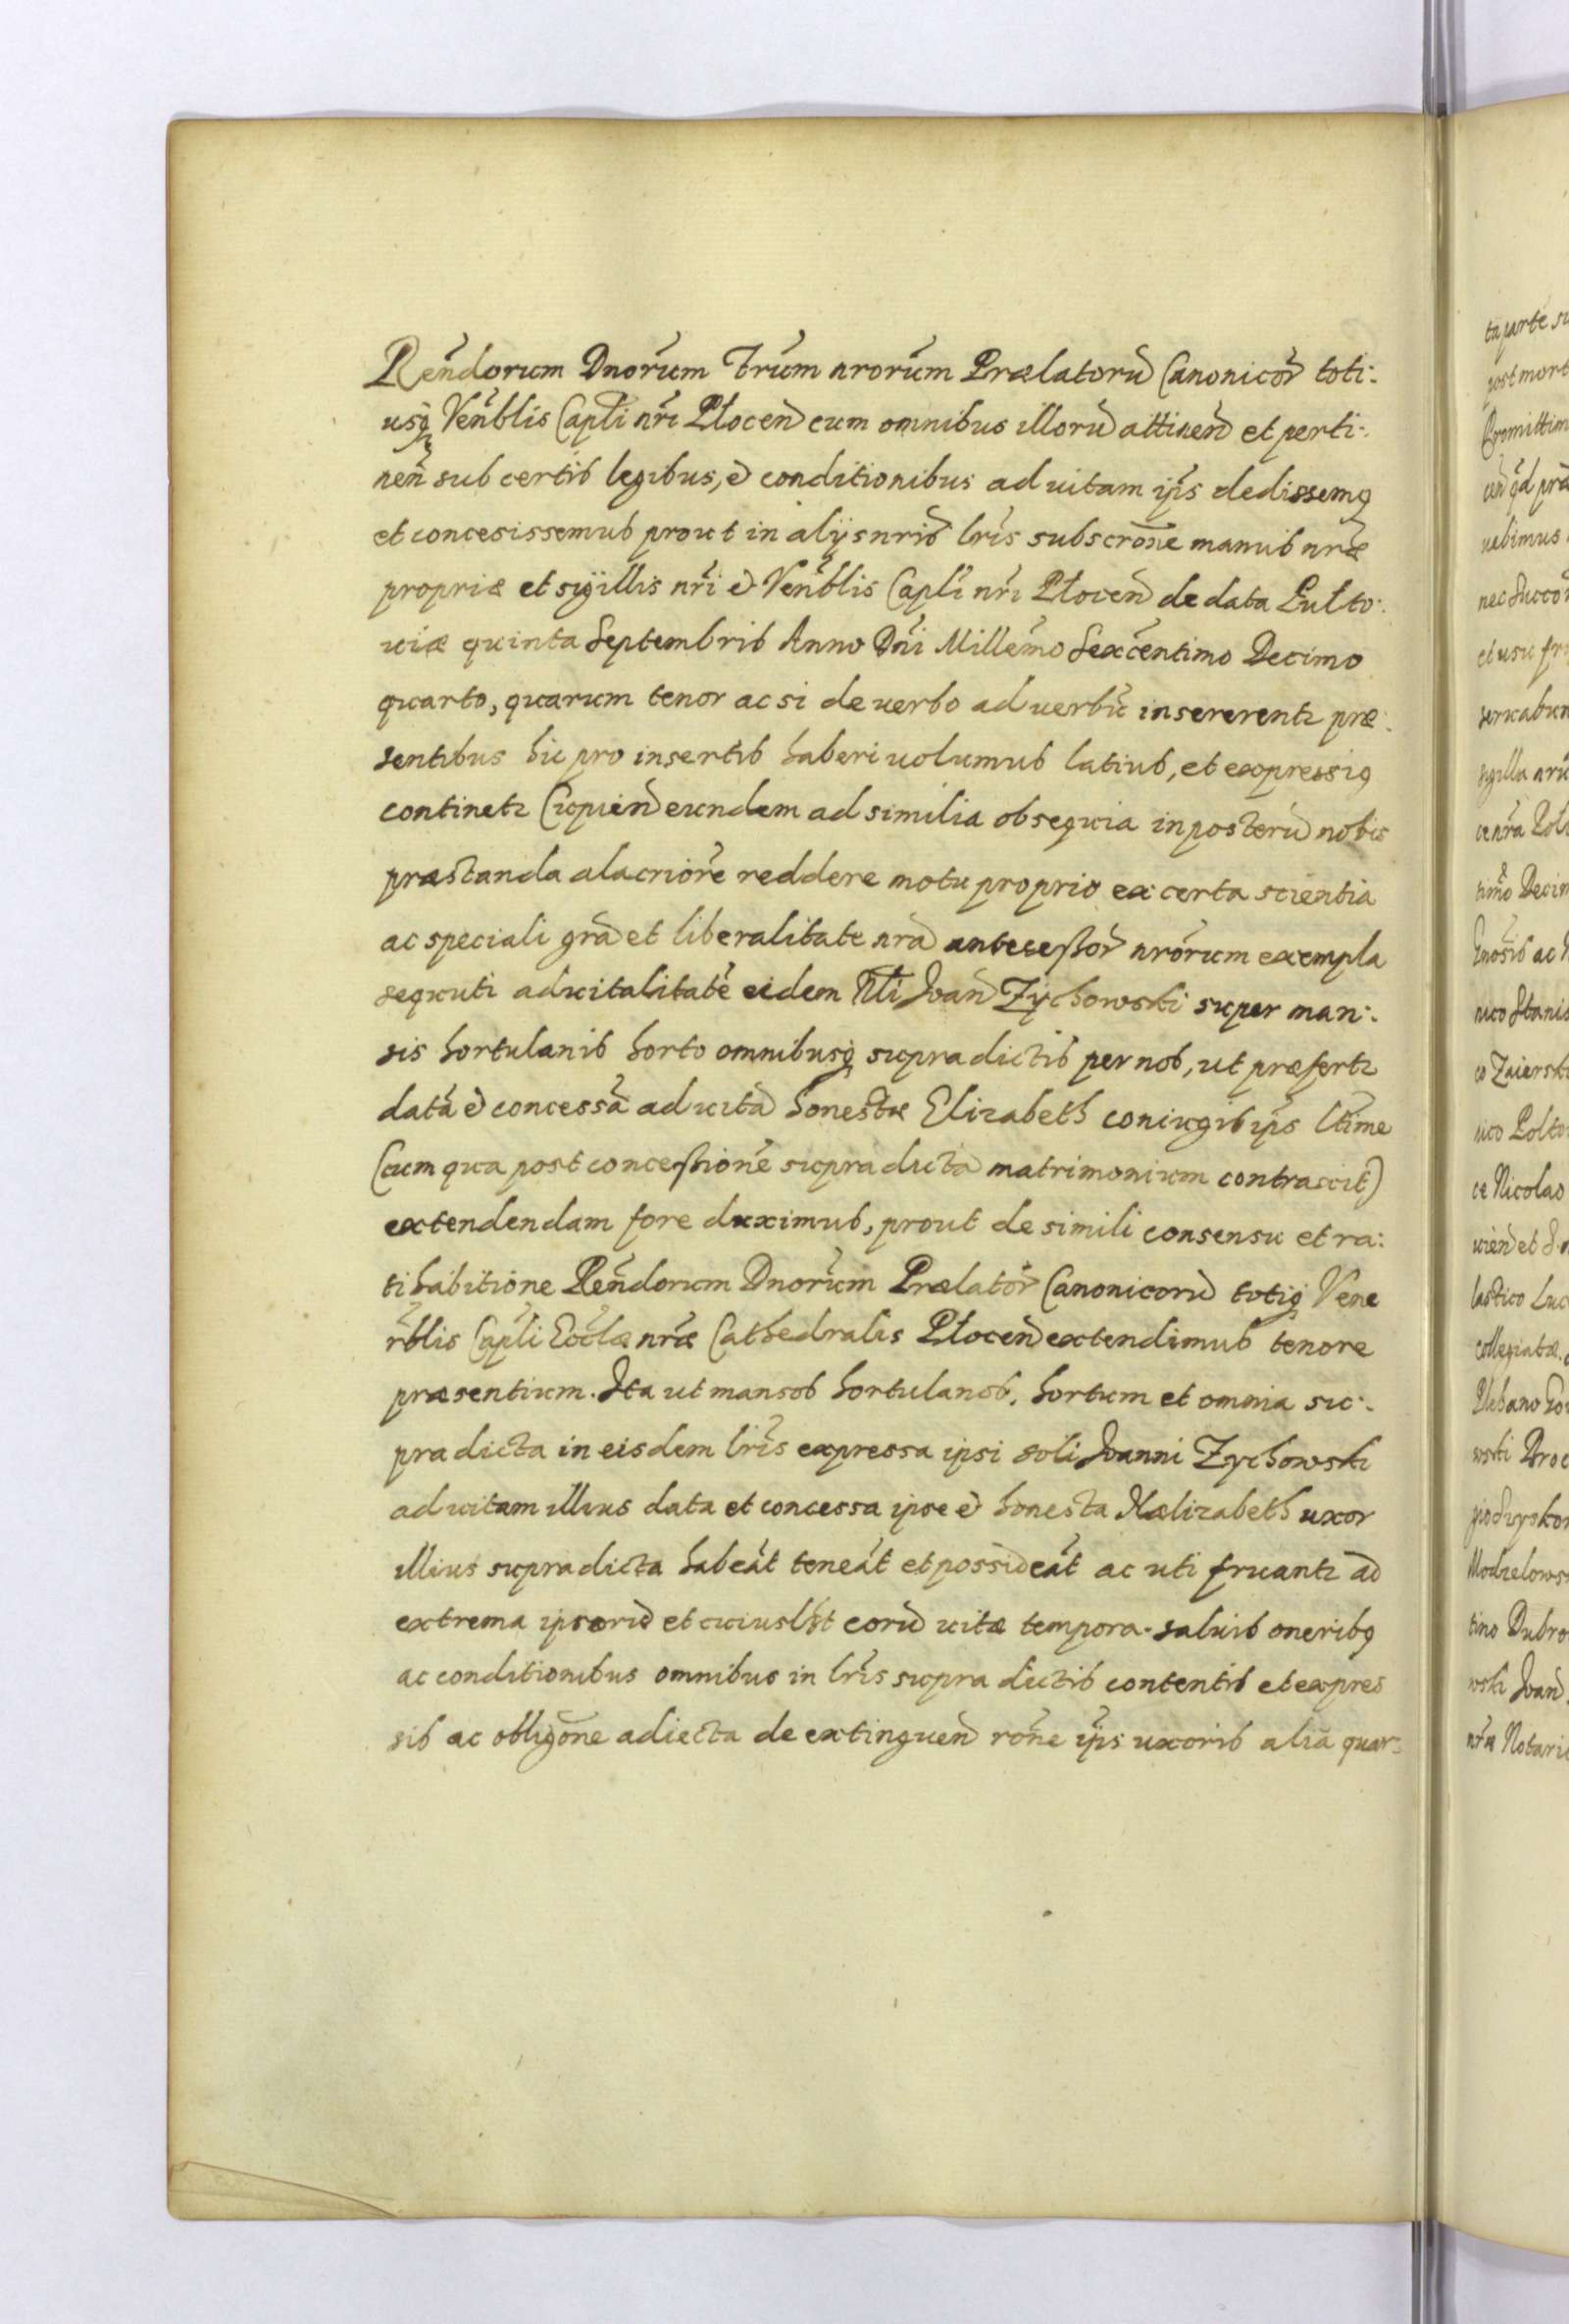 Rеndorum Dnorum Frum nrorum Prælatorū Canonicor toti:
usq Venblis Capli nri Płocen cum omnibus illorū attinen et perti:
nen sub certis legibus, & conditionibus ad uitam ips dedissemq
et concesissemus prout in alijs nris lris subscrone manus nræ
propriæ et sigillis nri & Venblis Capli nri Płocen de data Pulto:
uiæ quinta Septembris Anno Dni Millemo Sexcentimo Decimo
quarto, quarum tenor ac si de uerbo ad uerbū insererentr præ:
sentibus hic pro insertis haberi uolumus latius, et expressiq
continetr Cupien eundem ad similia obsequia in posterū nobis
præstanda alacriore reddere motu proprio ex certa scientia
ac speciali gra et liberalitate nra antecessor nrorum exempla
sequuti aduitalitatē eidem Nli Joan Zychowski super man:
sis hortulanis horto omnibusq supradictis per nos, ut præfertr
datā & concessā ad uitā honestæ Elizabeth coniugis ips ltime
(cum qua post concessionē supradictā matrimonium contraxit)
extendendam fore duximus, prout de simili consensu et ra:
tihabitione Rendorum Dnorum Prælator Canonicorū totiq Vene
rblis Capli Ecclæ nræ Cathedralis Płocen extendimus tenore
præsentium. Ita ut mansos hortulanos, hortum et omnia su:
pra dicta in eisdem lris expressa ipsi soli Joanni Zychowski
ad uitam illius data et concessa ipse & honesta Hælizabeth uxor
illius supradicta habeāt teneāt et possideāt ac uti fruantr ad
extrema ipsorū et cuiuslbt eorū uitæ tempora. saluis oneribq
ac conditionibus omnibus in lris supra dictis contentis et expres
sis ac obligone adiecta de extinguen rone ips uxoris aliā quar:
ta parte su
post mort
Promittim
uebimus
et usu fr
seruabun
sigilla nrū
timo Decim
nico Stanis
co Zaiersk
nico Polto
ce Nicolao
uien et
lastico Luc
collegiatæ
Plebano
wski Proc
Modzelows
tino Dubro
wski Joan
nræ Notari